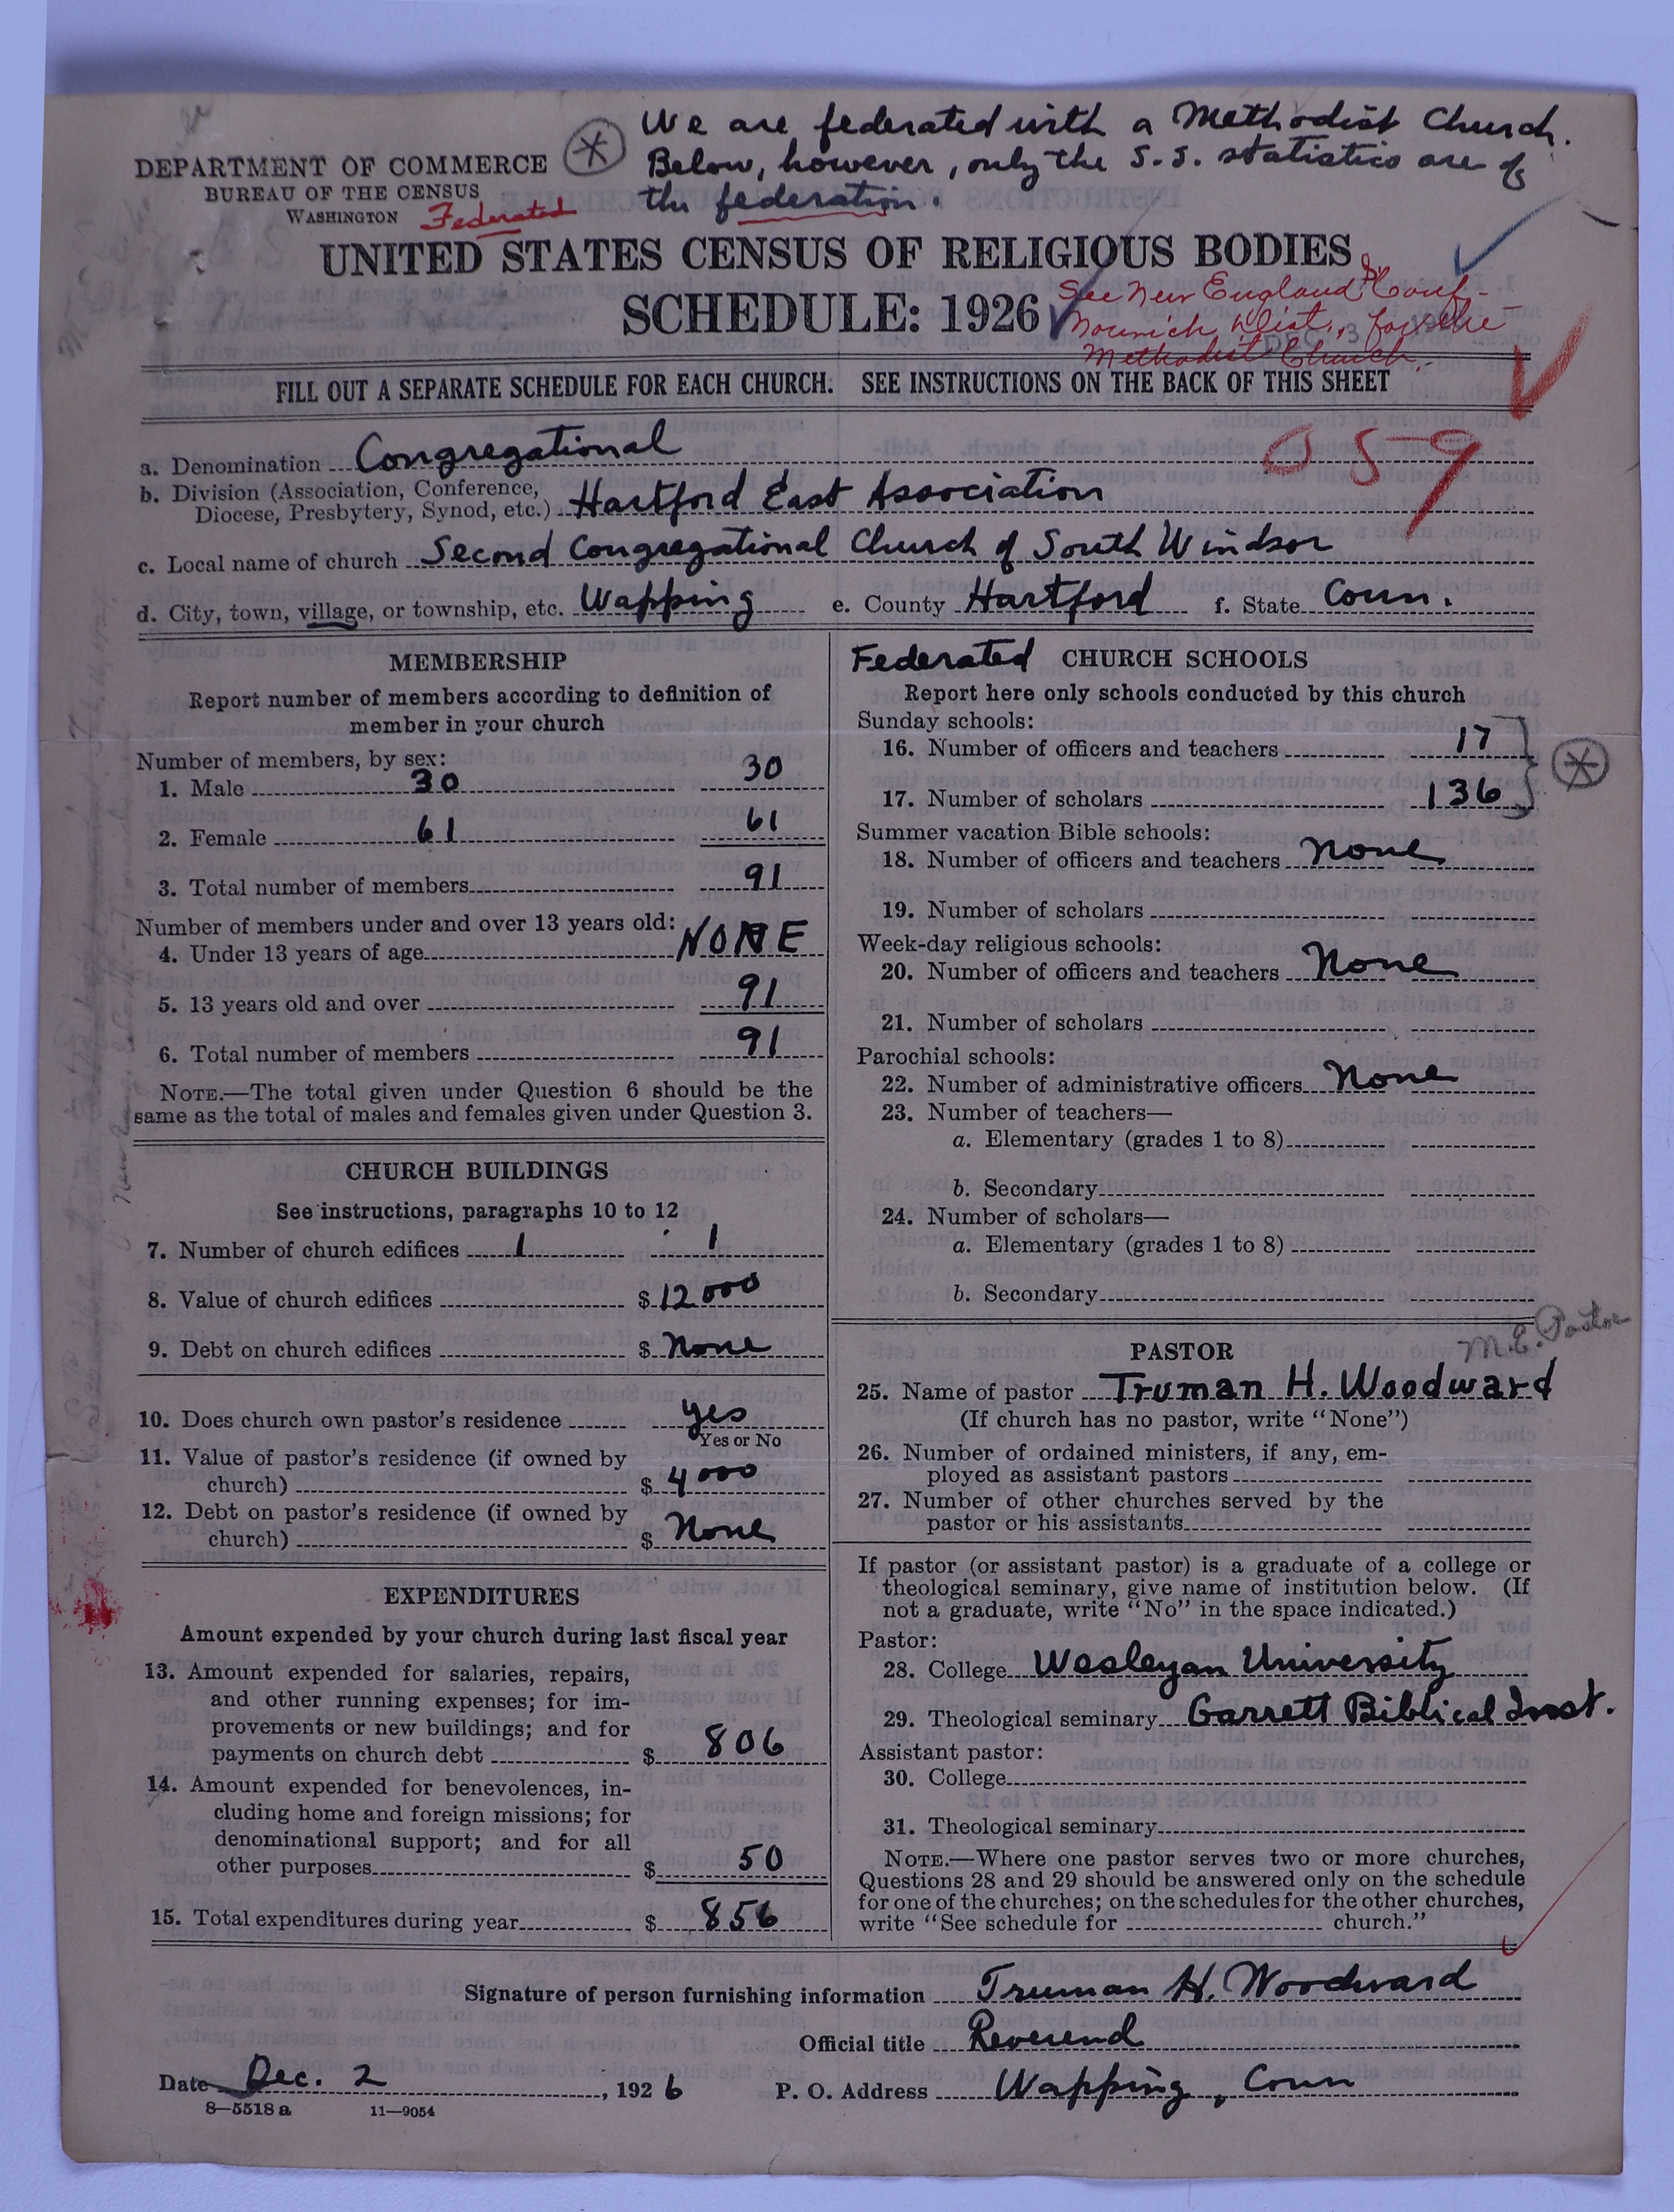 We are federated with a Methodist Church.
Below, however, only the S.S. statistics are of
the federation.
DEPARTMENT OF COMMERCE
BUREAU OF THE CENSUS
WASHINGTON Federated
UNITED STATES CENSUS OF RELIGIOUS BODIES
SCHEDULE: 1926
See New England Conf-
Norwich Dist., for the
Methodist Church.
FILL OUT A SEPARATE SCHEDULE FOR EACH CHURCH. SEE INSTRUCTIONS ON THE BACK OF THIS SHEET
059
a. Denomination Congregational
b. Division (Association, Conference,
Diocese, Presbytery, Synod, etc.) Hartford East Association
c. Local name of church Second Congregational Church of South Windsor
d. City, town, village, or township, etc. Wapping e. County Hartford f. State Conn.
MEMBERSHIP
Report number of members according to definition of
member in your church
Number of members, by sex:
1. Male 30 30
2. Female 61 61
3. Total number of members 91
Number of members under and over 13 years old:
4. Under 13 years of age NONE
5. 13 years old and over 91
6. Total number of members 91
NOTE.—The total given under Question 6 should be the
same as the total of males and females given under Question 3.
CHURCH BUILDINGS
See instructions, paragraphs 10 to 12
7. Number of church edifices 1 1
8. Value of church edifices $ 12000
9. Debt on church edifices $ None
10. Does church own pastor's residence yes
Yes or No
11. Value of pastor's residence (if owned by
church) $ 4000
12. Debt on pastor's residence (if owned by
church) $ None
EXPENDITURES
Amount expended by your church during last fiscal year
13. Amount expended for salaries, repairs,
and other running expenses; for im-
provements or new buildings; and for
payments on church debt $ 806
14. Amount expended for benevolences, in-
cluding home and foreign missions; for
denominational support; and for all
other purposes $ 50
15. Total expenditures during year $ 856
Federated CHURCH SCHOOLS
Report here only schools conducted by this church
Sunday schools:
16. Number of officers and teachers 17
17. Number of scholars 136
Summer vacation Bible schools:
18. Number of officers and teachers None
19. Number of scholars
Week-day religious schools:
20. Number of officers and teachers None
21. Number of scholars
Parochial schools:
22. Number of administrative officers None
23. Number of teachers—
a. Elementary (grades 1 to 8)
b. Secondary
24. Number of scholars—
a. Elementary (grades 1 to 8)
b. Secondary
M.E. Pastor
PASTOR
25. Name of pastor Truman H. Woodward
(If church has no pastor, write "None")
26. Number of ordained ministers, if any, em-
ployed as assistant pastors
27. Number of other churches served by the
pastor or his assistants
If pastor (or assistant pastor) is a graduate of a college or
theological seminary, give name of institution below. (If
not a graduate, write "No" in the space indicated.)
Pastor:
28. College Wesleyan University
29. Theological seminary Garrett Biblical Inst.
Assistant pastor:
30. College
31. Theological seminary
NOTE.—Where one pastor serves two or more churches,
Questions 28 and 29 should be answered only on the schedule
for one of the churches; on the schedules for the other churches,
write "See schedule for church."
Signature of person furnishing information Truman H. Woodward
Official title Reverend
Date Dec. 2, 1926 P. O. Address Wapping, Conn
8—5518a 11—9054